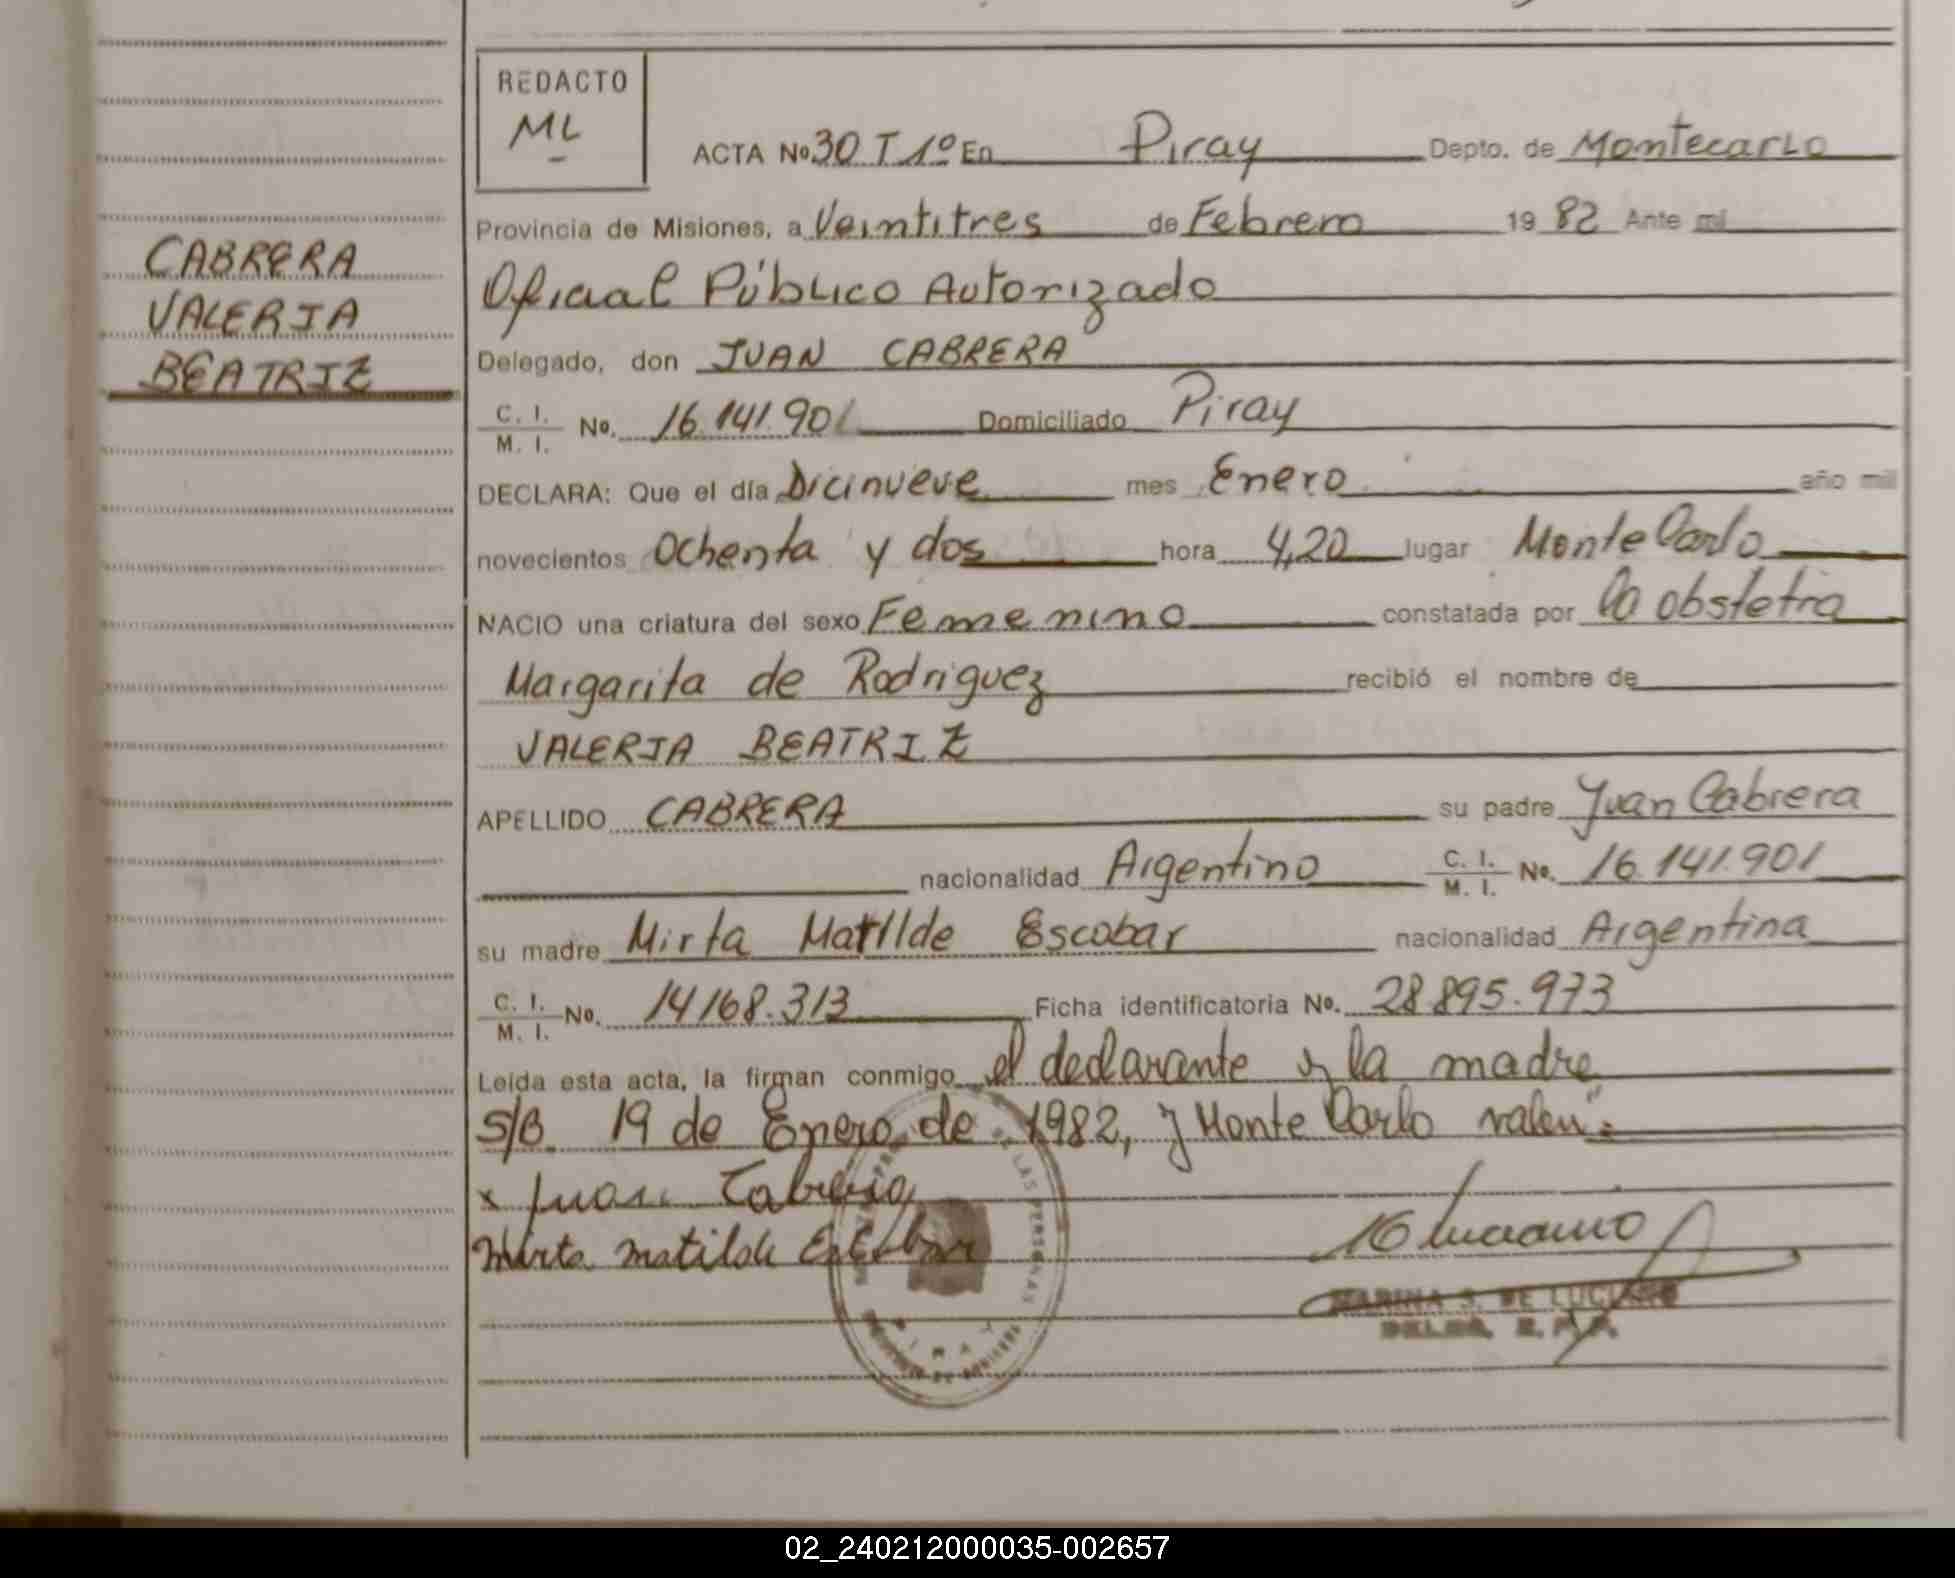 REDACTO
ML
ACTA Nº 30 T 1º En Piray Depto. de Montecarlo
Provincia de Misiones, a Veintitres de Febrero 19 82 Ante mi
CABRERA
VALERIA
BEATRIZ
Oficial Público Autorizado
Delegado, don JUAN CABRERA
C. I. M. I. No. 16.141.901 Domiciliado Piray
DECLARA: Que el día Dicinueve mes Enero año mil
novecientos Ochenta y dos hora 4,20 lugar Monte Carlo
NACIO una criatura del sexo Femenino constatada por la obstetra
Margarita de Rodriguez recibió el nombre de
VALERIA BEATRIZ
APELLIDO CABRERA su padre Juan Cabrera
nacionalidad Argentino C. I. M. I. No. 16.141.901
su madre Mirta Matilde Escobar nacionalidad Argentina
C. I. M. I. No. 14168.313 Ficha identificatoria No. 28.895.973
Leída esta acta, la firman conmigo el declarante y la madre
S/B. 19 de Enero de 1982, y Monte Carlo valen":
x Juan Cabrera
Mirta Matilde Escobar
DE LAS PERSONAS
PIRAY
MARINA S. DE LUCIANO
02_240212000035-002657